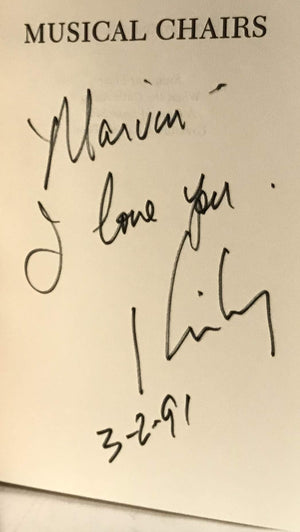 MUSICAL CHAIRS
Marvin -
I love you.
Kinky
3-2-91